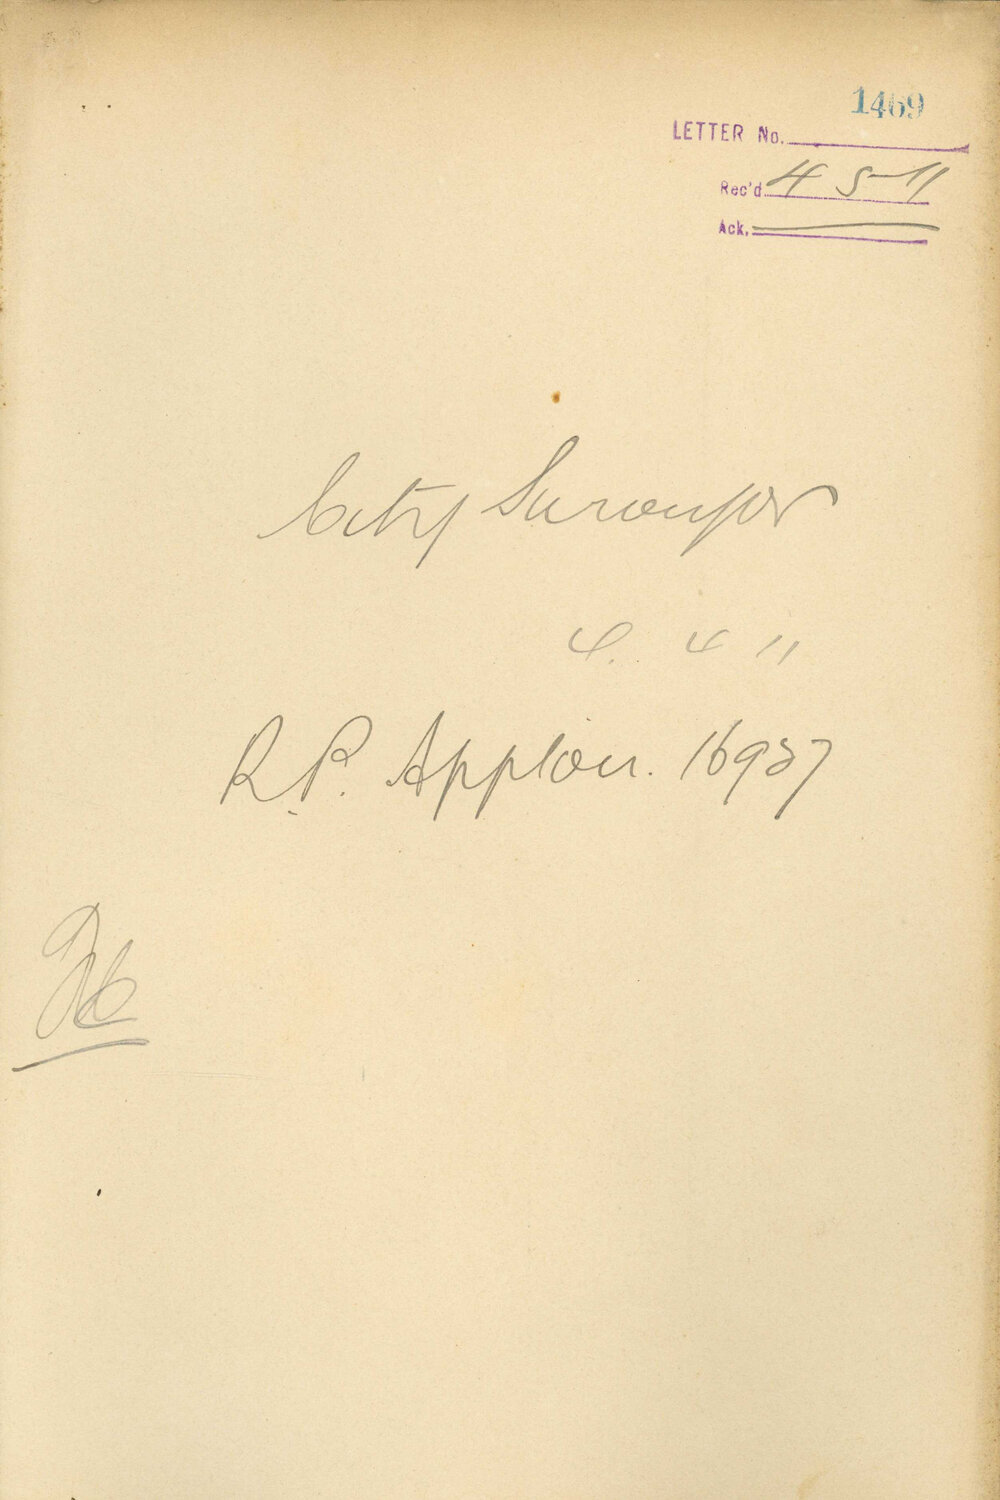 1469
LETTER No.
Rec'd 4 5-11
Ack.
City Surveyor
4. 4 11
R.P. Applon. 16937